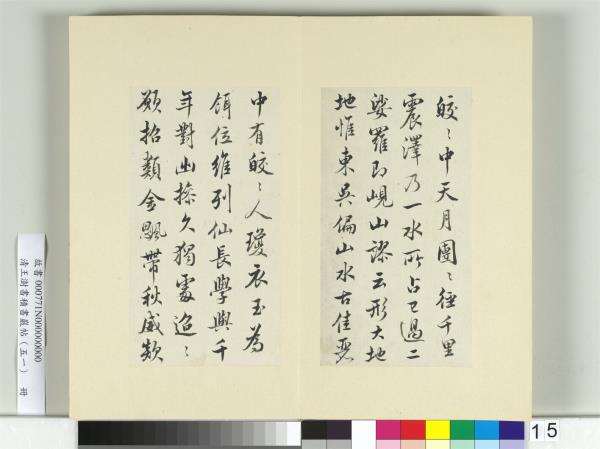 皎〻中天月團〻徑千里
震澤乃一水所占已過二
娑羅即峴山謬云形大地
地惟東吳偏山水古佳麗
中有皎〻人瓊衣玉為
餌位維列仙長學與千
年對幽操久獨處迢〻
願招類金飈帶秋威欻
故書 000771N000000000
清王澍書積書巖帖（五一） 冊
15